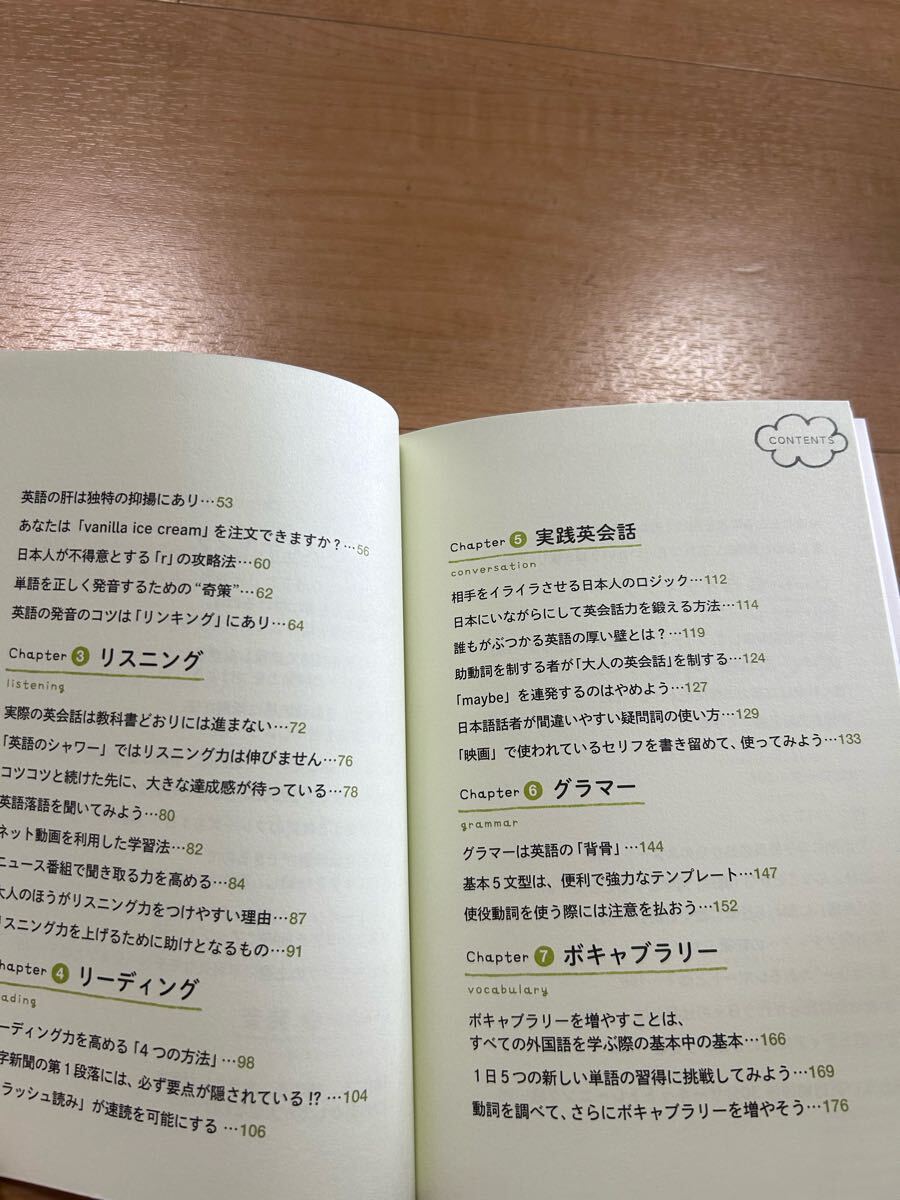 英語の肝は独特の抑揚にあり…53
あなたは「vanilla ice cream」を注文できますか?…56
日本人が不得意とする「r」の攻略法…60
単語を正しく発音するための“奇策”…62
英語の発音のコツは「リンキング」にあり…64
Chapter 3 リスニング
listening
実際の英会話は教科書どおりには進まない…72
「英語のシャワー」ではリスニング力は伸びません…76
コツコツと続けた先に、大きな達成感が待っている…78
英語落語を聞いてみよう…80
ネット動画を利用した学習法…82
ニュース番組で聞き取る力を高める…84
大人のほうがリスニング力をつけやすい理由…87
リスニング力を上げるために助けとなるもの…91
Chapter 4 リーディング
ading
ーディング力を高める「4つの方法」…98
字新聞の第1段落には、必ず要点が隠されている!?…104
ラッシュ読み」が速読を可能にする…106
CONTENTS
Chapter 5 実践英会話
conversation
相手をイライラさせる日本人のロジック…112
日本にいながらにして英会話力を鍛える方法…114
誰もがぶつかる英語の厚い壁とは?…119
助動詞を制する者が「大人の英会話」を制する…124
「maybe」を連発するのはやめよう…127
日本語話者が間違いやすい疑問詞の使い方…129
「映画」で使われているセリフを書き留めて、使ってみよう…133
Chapter 6 グラマー
grammar
グラマーは英語の「背骨」…144
基本5文型は、便利で強力なテンプレート…147
使役動詞を使う際には注意を払おう…152
Chapter 7 ボキャブラリー
vocabulary
ボキャブラリーを増やすことは、
すべての外国語を学ぶ際の基本中の基本…166
1日5つの新しい単語の習得に挑戦してみよう…169
動詞を調べて、さらにボキャブラリーを増やそう…176